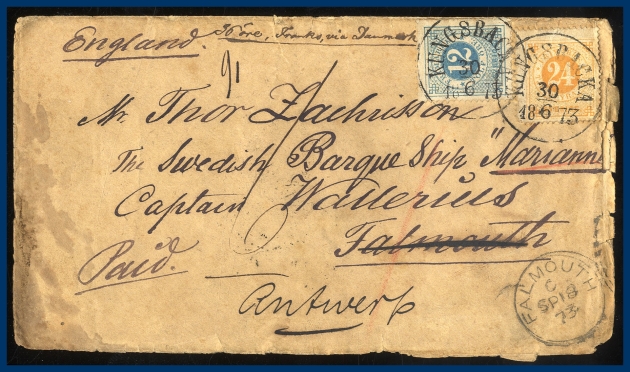 England. via Danmark
91
12
24
KUNGSBACKA
30
6
KONGSBACKA
30
18 6 73
Mr. Thor Zachrisson
The Swedish Barque Ship "Marianne
Captain Wallerius
Falmouth
Paid.
Antwerp
FALMOUTH
C
SP 18
73